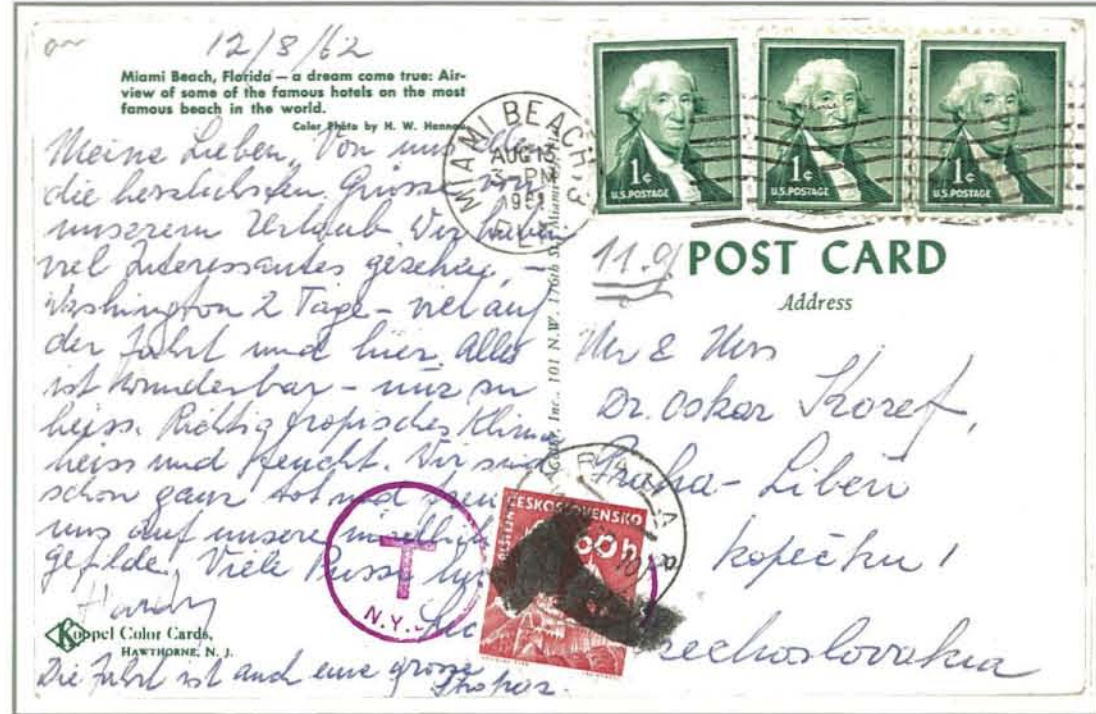 12/8/62
Miami Beach, Florida — a dream come true: Air-
view of some of the famous hotels on the most
famous beach in the world.
Color Photo by H. W. Hannau
Meine Lieben, Von uns allen
die herzlichsten Grüsse von
unserem Urlaub Wir haben
viel Interessantes gesehen, –
Washington 2 Tage – viel auf
der Fahrt und hier. Alles
ist wunderbar – nur zu
heiss. Richtig tropisches Klima
heiss und feucht. Wir sind
schon ganz rot und freu
uns auf unsere
gefilde. Viele Bussy
Hardy
Koppel Color Cards,
HAWTHORNE, N. J.
Die Fahrt ist auch eine grosse
MIAMI BEACH
AUG 13
3 PM
FLA
1¢
U.S. POSTAGE
1¢
U.S. POSTAGE
1¢
U.S. POSTAGE
Inc., 101 N.W. 176th St., Miami
11.9
POST CARD
Address
Mr & Mrs
Dr. Oskar Koref,
Praha - Libeň
kopečku 1
zechoslovakia
T
N.Y.
ČESKOSLOVENSKO
60h